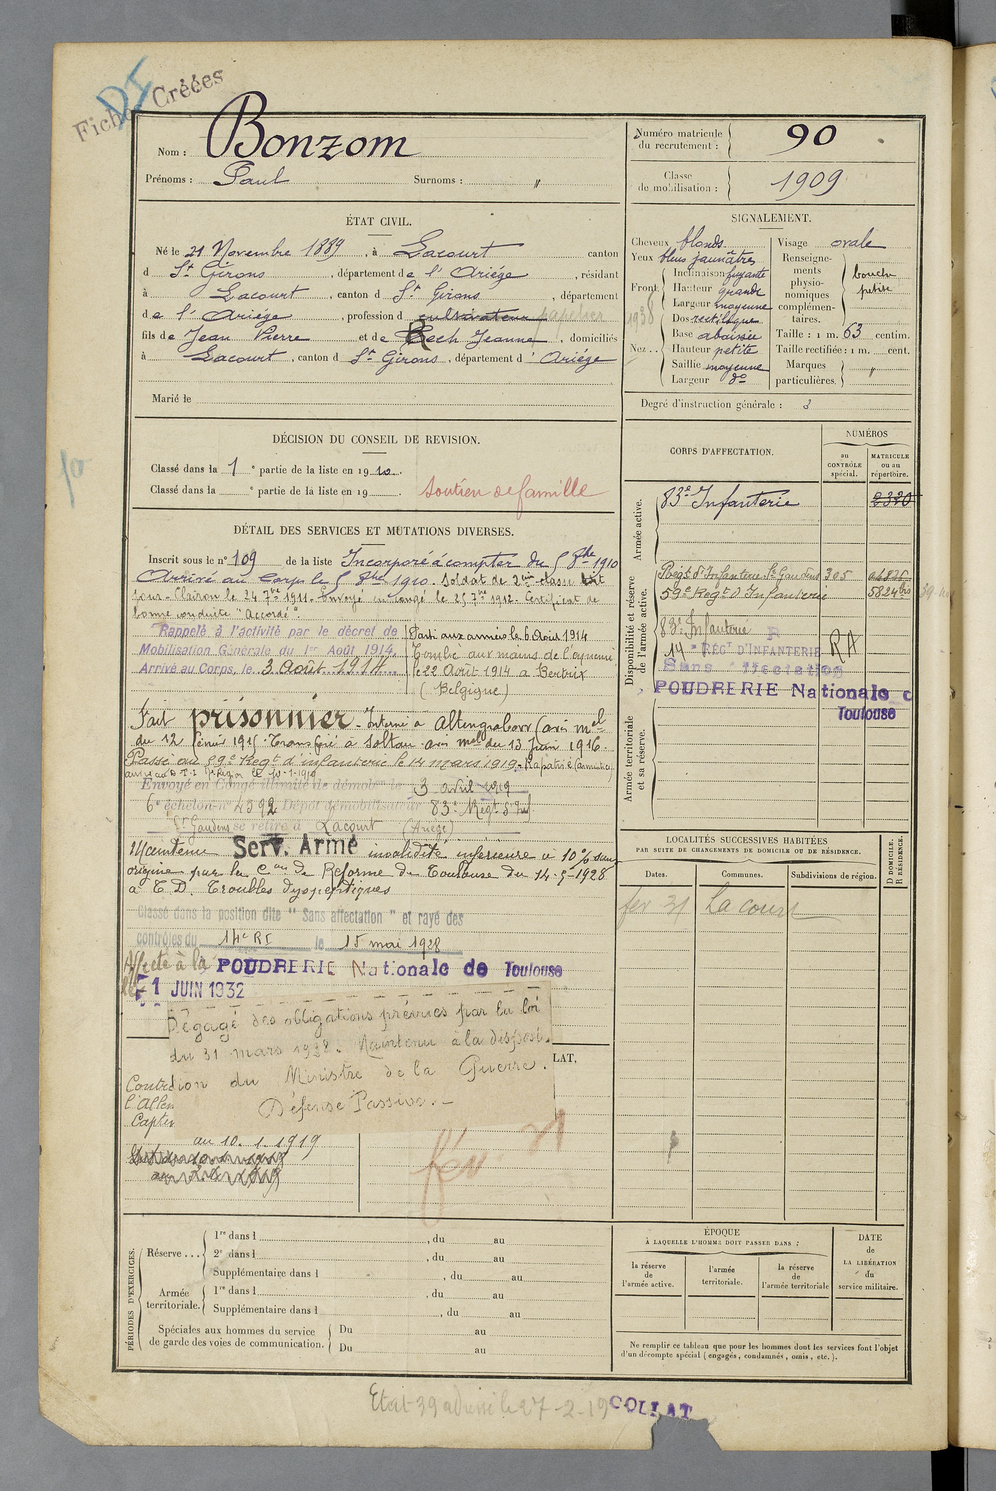 Fiches Créées
DI
Nom : Bonzom
Prénoms : Paul Surnoms : "
Numéro matricule du recrutement : 90
Classe de mobilisation : 1909
ÉTAT CIVIL.
Né le 21 Novembre 1889, à Lacourt canton
d St Girons, département de l'Ariége, résidant
à Lacourt, canton d St Girons, département
de l'Ariége, profession d cultivateur papetier
fils de Jean Pierre et de Rech Jeanne, domiciliés
à Lacourt, canton d St Girons, département d' Ariége
Marié le
SIGNALEMENT.
Cheveux blonds
Yeux bleus jaunâtres
Front Inclinaison fuyante
Hauteur grande
Largeur moyenne
Nez.. Dos rectiligne
Base abaissée
Hauteur petite
Saillie moyenne
Largeur do
Visage ovale
Renseignements physionomiques complémentaires. bouche petite
Taille : 1 m. 63 centim.
Taille rectifiée : 1 m. cent.
Marques particulières. "
1938
Degré d'instruction générale : 3
DÉCISION DU CONSEIL DE REVISION.
Classé dans la 1e partie de la liste en 1910.
Classé dans la e partie de la liste en 19
soutien de famille
10
DÉTAIL DES SERVICES ET MUTATIONS DIVERSES.
Inscrit sous le n° 109 de la liste Incorporé à compter du 5 8bre 1910
Arrivé au Corps le 5 8bre 1910. Soldat de 2eme classe dit
jour. Clairon le 24 7bre 1911. Envoyé en congé le 25 7bre 1912. Certificat de
bonne conduite "Accordé".
Rappelé à l'activité par le décret de
Mobilisation Générale du 1er Août 1914.
Arrivé au Corps, le 3 Août 1914
Parti aux armées le 6 Août 1914
Tombé aux mains de l'ennemi
le 22 Août 1914 à Bertrix
(Belgique)
Fait prisonnier. Interné à Altengrabow (avis mel
du 12 février 1915. Transféré à Soltau avis mel du 13 Juin 1916.
Passé au 59e Regt d'infanterie le 14 mars 1919. Rapatrié (armistice)
Envoyé en Congé illimité de démobon le 3 avril 1919
6e échelon n° 4592 Dépot démobilisateur 83e Regt d'Inf
St Gaudens se retire à Lacourt (Ariège)
Maintenu Serv. Armé invalidité inférieure à 10% sans
origine par la Con de Réforme de Toulouse du 14-5-1928
a T.D. Troubles dyspeptiques
Classé dans la position dite " Sans affectation " et rayé des
contrôles du 14e RI le 15 mai 1928
Affecté à la POUDRERIE Nationale de Toulouse
1 JUIN 1932
Dégagé des obligations prévues par la loi
du 31 mars 1928. Maintenu à la disposi-
tion du Ministre de la Guerre.
Défense Passive. -
LAT,
Contre
l'Allem
Capti
au 10. 1. 1919
fév 31
CORPS D'AFFECTATION.
NUMÉROS
au CONTRÔLE spécial.
MATRICULE ou au répertoire.
Armée active.
83e Infanterie 2320
Disponibilité et réserve de l'armée active.
Regt d'Infanterie St Gaudens 305
59e Regt d'Infanterie 5824 bis
83e Infanterie
14 e REGT D'INFANTERIE RA
Sans affectation
POUDRERIE Nationale d
Toulouse
Armée territoriale et sa réserve.
LOCALITÉS SUCCESSIVES HABITÉES
PAR SUITE DE CHANGEMENTS DE DOMICILE OU DE RÉSIDENCE.
Dates. Communes. Subdivisions de région. D DOMICILE. R RÉSIDENCE.
fev 31 Lacourt
PÉRIODES D'EXERCICES.
Réserve ... 1re dans l , du au
2e dans l , du au
Supplémentaire dans l , du au
Armée territoriale. 1re dans l , du au
Supplémentaire dans l , du au
Spéciales aux hommes du service de garde des voies de communication. Du au
Du au
ÉPOQUE
À LAQUELLE L'HOMME DOIT PASSER DANS :
la réserve de l'armée active.
l'armée territoriale.
la réserve de l'armée territoriale
DATE de LA LIBÉRATION du service militaire.
Ne remplir ce tableau que pour les hommes dont les services font l'objet
d'un décompte spécial (engagés, condamnés, omis, etc.).
Etat 39 adressé le 27-2-19
COLLAT